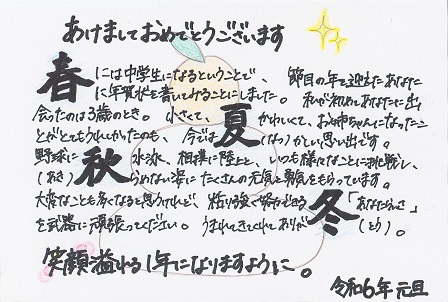 あけましておめでとうございます
春には中学生になるということで、節目の年を迎えたあなた
に年賀状を書いてみることにしました。私が初めてあなたに出
会ったのは3歳のとき。小さくて、かわいくて、お姉ちゃんになったこ
とがとてもうれしかったのも、今では夏(なつ)かしい思い出です。
野球に水泳、相撲に陸上と、いつも様々なことに挑戦し、
秋(あき)らめない姿にたくさんの元気と勇気をもらっています。
大変なことも多くなると思うけれど、粘り強く努力できる「あなたらしさ」
を武器に頑張ってください。うまれてきてくれてありが冬(とう)。
笑顔溢れる1年になりますように。
令和6年元旦